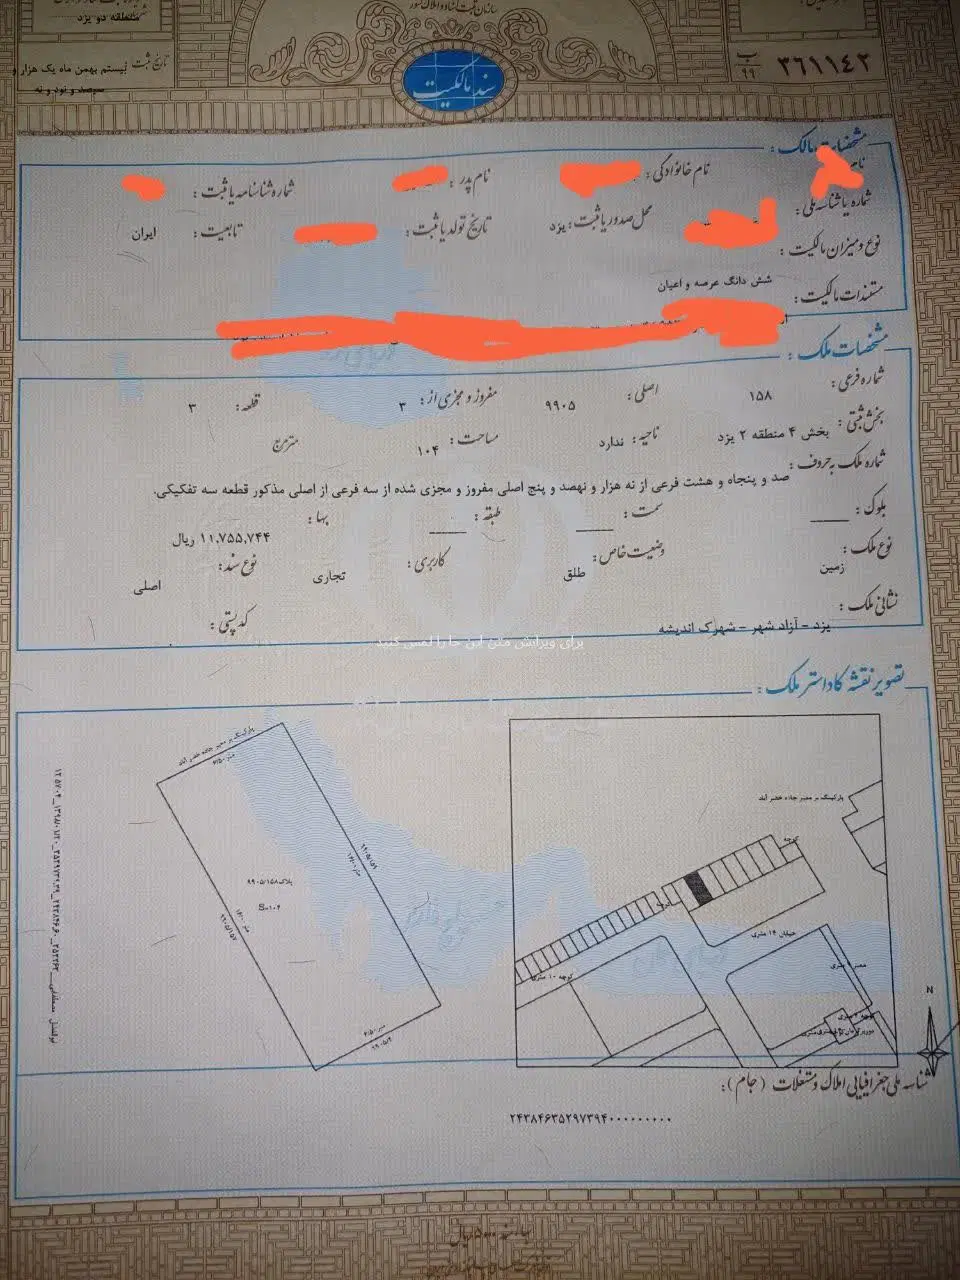 سازمان ثبت اسناد و املاک کشور
منطقه دو یزد
تاریخ ثبت : بیستم بهمن ماه یک هزار و
سیصد و نود و نه
سند مالکیت
۳۶۱۱۴۲ ب ۹۹
مشخصات مالک :
نام خانوادگی : نام پدر : شماره شناسنامه یا ثبت :
شماره یا شناسه ملی : محل صدور یا ثبت : یزد تاریخ تولد یا ثبت : تابعیت : ایران
نوع و میزان مالکیت :
شش دانگ عرصه و اعیان
مستندات مالکیت :
مشخصات ملک :
شماره فرعی : ۱۵۸ اصلی : ۹۹۰۵ مفروز و مجزی از : ۳ قطعه : ۳
بخش ثبتی : بخش ۴ منطقه ۲ یزد ناحیه : ندارد مساحت : ۱۰۴ مترمربع
شماره ملک به حروف :
صد و پنجاه و هشت فرعی از نه هزار و نهصد و پنج اصلی مفروز و مجزی شده از سه فرعی از اصلی مذکور قطعه سه تفکیکی.
بلوک : سمت : طبقه : بها : ۱۱,۷۵۵,۷۴۴ ریال
نوع ملک : زمین وضعیت خاص : طلق کاربری : تجاری نوع سند : اصلی
نشانی ملک :
یزد - آزاد شهر - شهرک اندیشه کد پستی :
برای ویرایش متن این جا را لمس کنید
تصویر نقشه کاداستر ملک :
پارکینگ بر معبر جاده خضر آباد
متر ۶/۵۰
۹۹۰۵/۱۵۹
متر ۱۶/۰۰
پلاک ۹۹۰۵/۱۵۸
S=۱۰۴
متر ۱۶/۰۰
۹۹۰۵/۱۵۷
متر ۶/۵۰
۹۹۰۵/۳
پارکینگ بر معبر جاده خضر آباد
کوچه
خیابان ۱۴ متری
کوچه ۱۰ متری
N
شناسه ملی جغرافیایی املاک و مستغلات (جام) :
۲۴۳۸۴۶۳۵۲۹۷۳۹۴۰۰۰۰۰۰۰۰۰